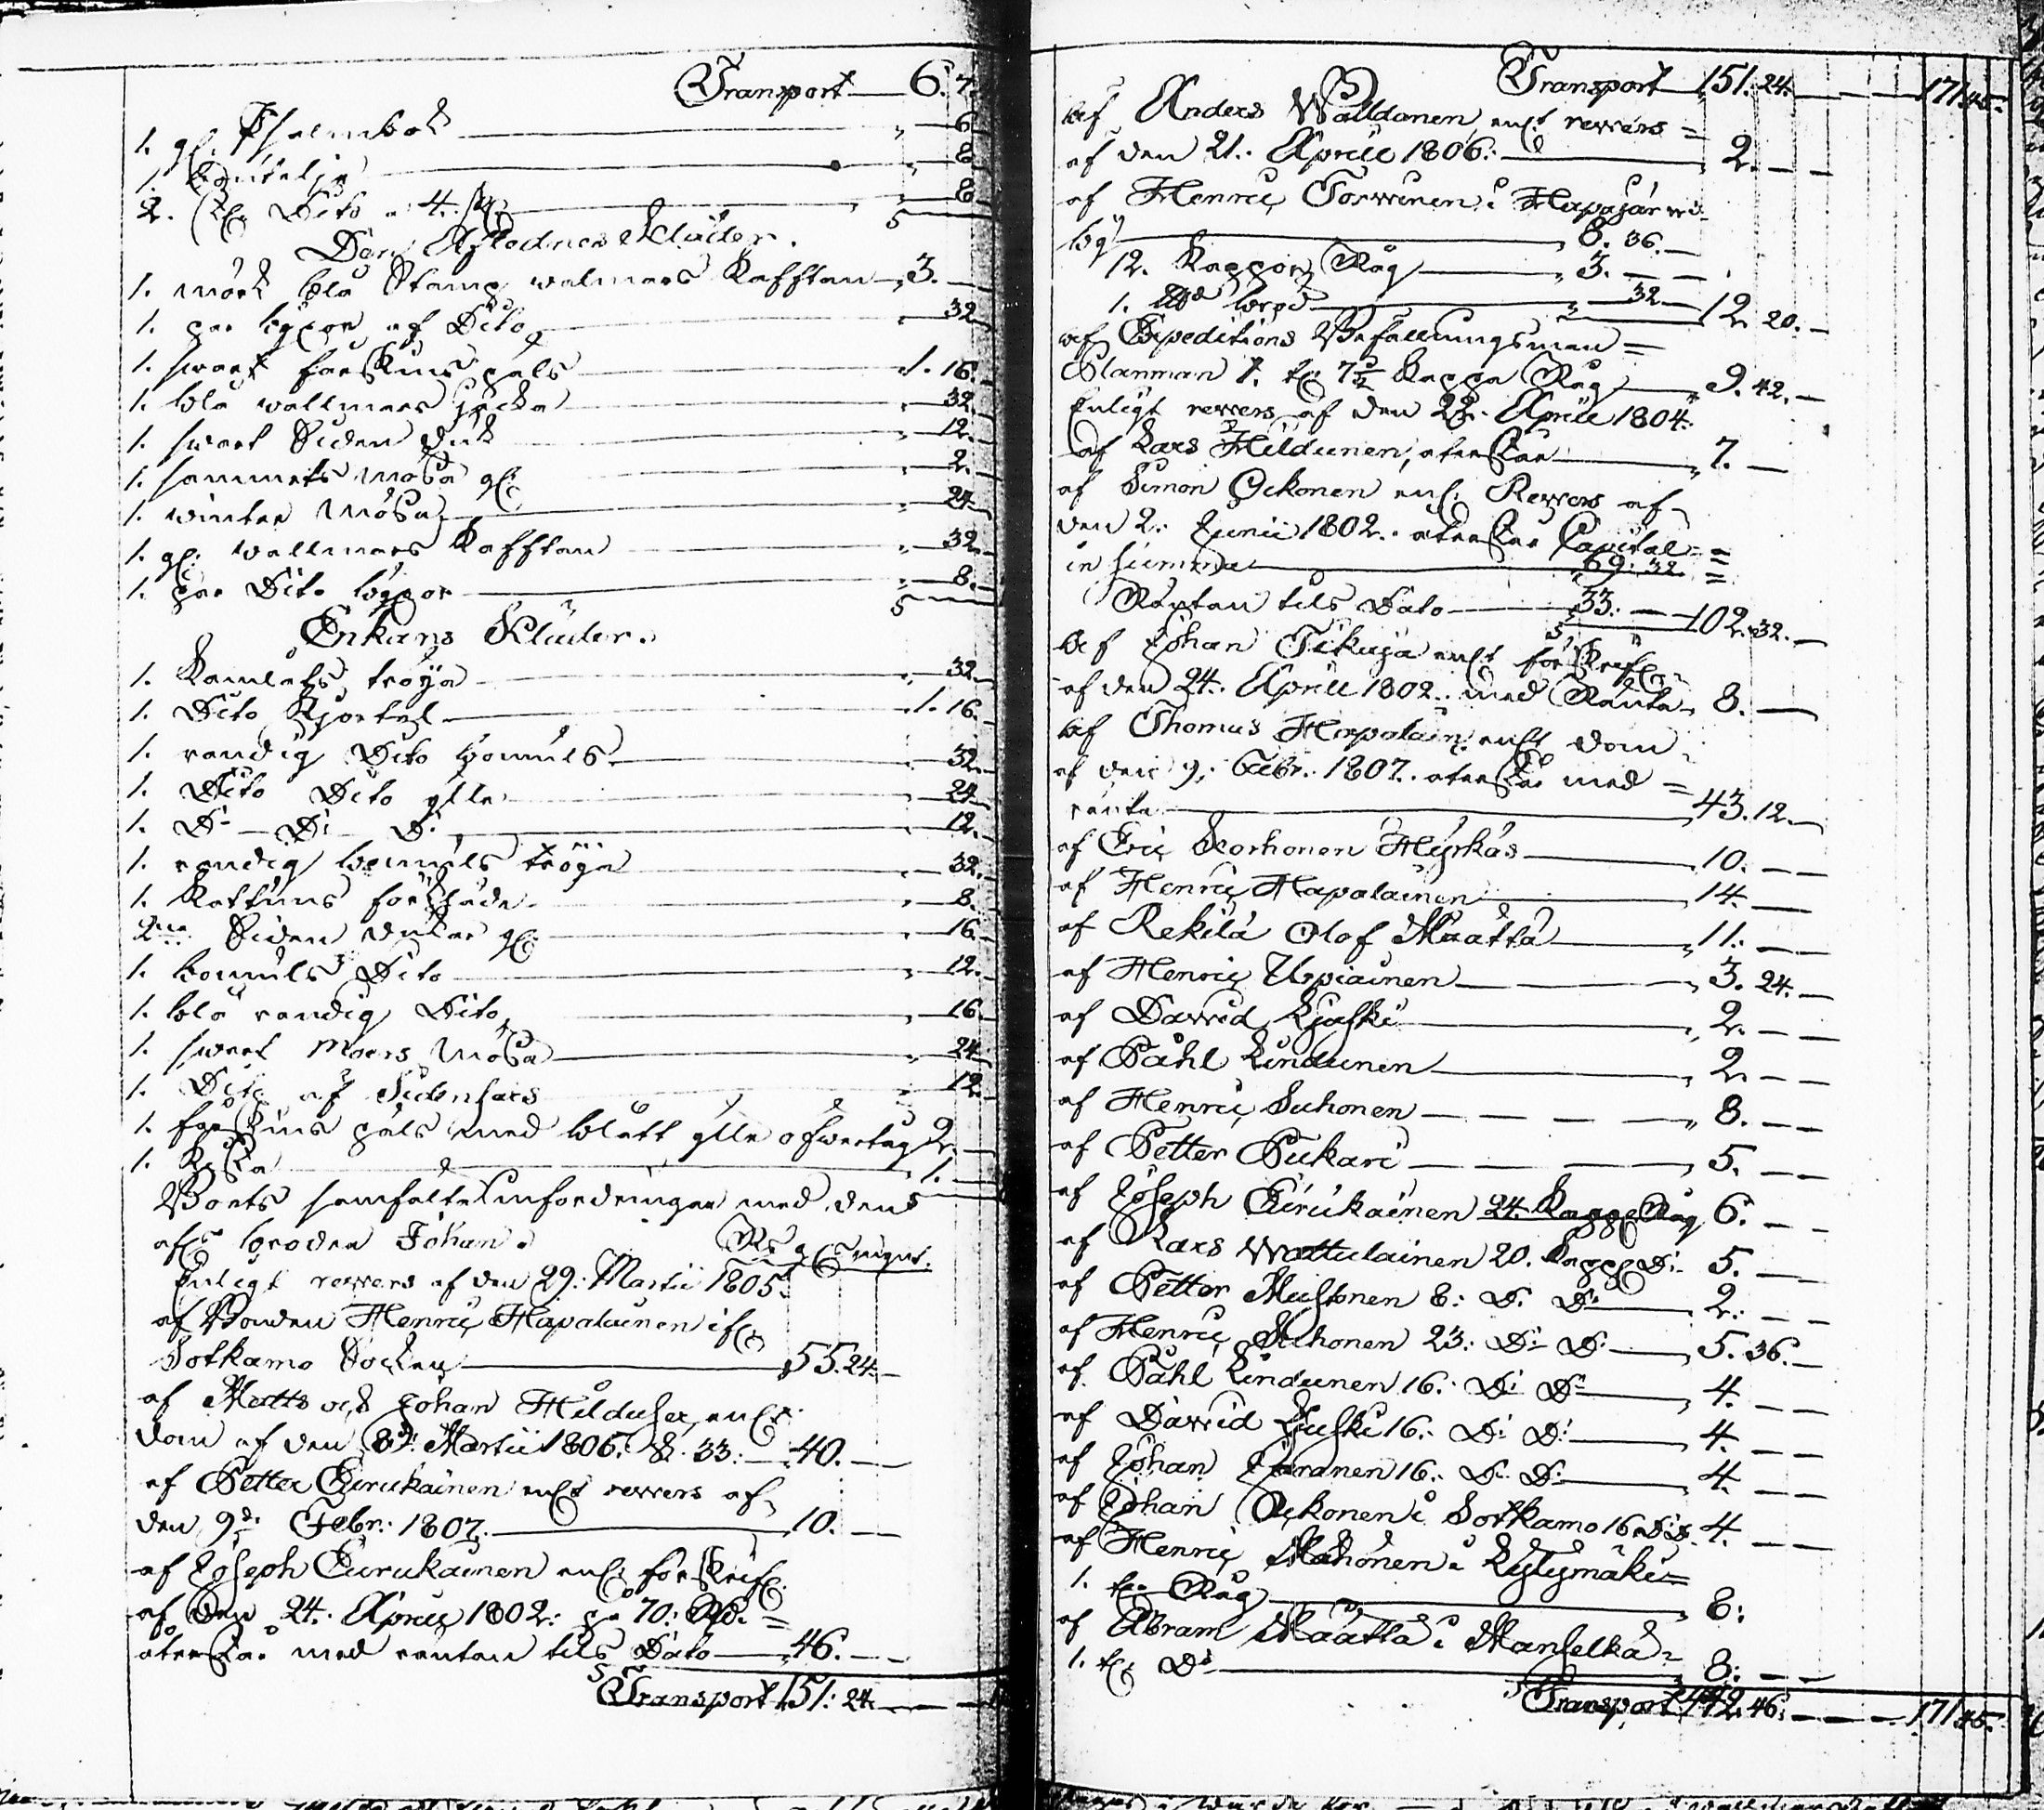 Transport 6. 7.
1. gl: Psalmbok 6
1. Boutelje 8
2. Dito a 4. 8
Den Aflednes Kläder.
1. mörk blå Stamp walmars Kafftan 3.
1. par byxor af Dito 32
1. swart fårskins päls 1. 16.
1. blå wallmars jacka 32.
1. swart Siden duk 12.
1. sammets mössa gl: 2.
1. winter mössa 24.
1. gl: wallmars Kafftan 32.
1. par Dito byxor 8.
Enkans Kläder.
1. Kamlots tröya 32.
1. Dito Kjortel 1. 16.
1. randig Dito bomuls 32.
1. Dito Dito ylle 24
1. Do Do Do 12.
1. randig bomuls tröya 32.
1. Kattuns förkläde 8.
2ne Siden dukar gl: 16.
1. bomuls Dito 12.
1. blå randig Dito 16.
1. swart Moers mössa 24
1. Dito af Sidensars 12.
1. fårskins päls med blått ylle öfwertyg 2.
1. Kista 1.
Boets samfälte infordringar med dens
afl: broder Johan.
Enligt rewers af den 29: Martii 1805.
af Bonden Henric Hapalainen i
Sotkamo Socken 55. 24.
af Matts och Johan Heldulser enl:
dom af den 8d: Martii 1806. §. 33: 40.
af Petter Eirukainen enl: rewers af
den 9d: Febr: 1807. 10.
af Joseph Eurukainen enl: förskrif:
af den 24. April 1802: på 70: Rd.
återstår med räntan tils Dato 46.
Transport 151: 24.
Transport 151. 24. 171. 45.
Af Anders Walldanen enl: rewers
af den 21. April 1806. 2.
af Henric Torwinen i Hapajärwi
by 8. 36.
12. Kappor Råg 3.
1. 32 12. 20.
af Expeditions Befallningsman
Planman 1. t: 7 1/2 Kappa Råg 9. 42.
Enligt rewers af den 22. April 1804.
af Lars Heldunen, återstår 7.
af Simon Ockonen enl: Rewers af
den 2. Junii 1802. återstår Capital
in summa 69. 32.
Räntan tils Dato 33. 102. 32.
Af Johan Tikaja enl: förskrif:
af den 24. April 1802. med Ränta 8.
Af Thomas Hapalain: enl: dom
af den 9. Febr. 1807. återstår med
ränta 43. 12.
af Eric Korhonen Hyrkäs 10.
af Henric Hapalainen 14
af Rekilä Olof Määttä 11.
af Henric Urpiainen 3. 24.
af David Kjäski 2.
af Påhl Lindunen 2.
af Henric Suhonen 8.
af Petter Pukari 5.
af Joseph Eirukainen 24. Kapp: Råg 6.
af Lars Wattulainen 20. Kapp: Do 5.
af Petter Mustonen 8: Do Do 2.
af Henric Suhonen 23: Do Do 5. 36.
af Påhl Lindunen 16. Do Do 4.
af David 16. Do Do 4.
af Johan 16. Do Do 4.
af Johan Ockonen i Sotkamo 16 4.
af Henric i
1. t: Råg 8.
af Abram Määttä i Manselkä
1. t: Do 8.
Transport 442. 46. 171. 45.